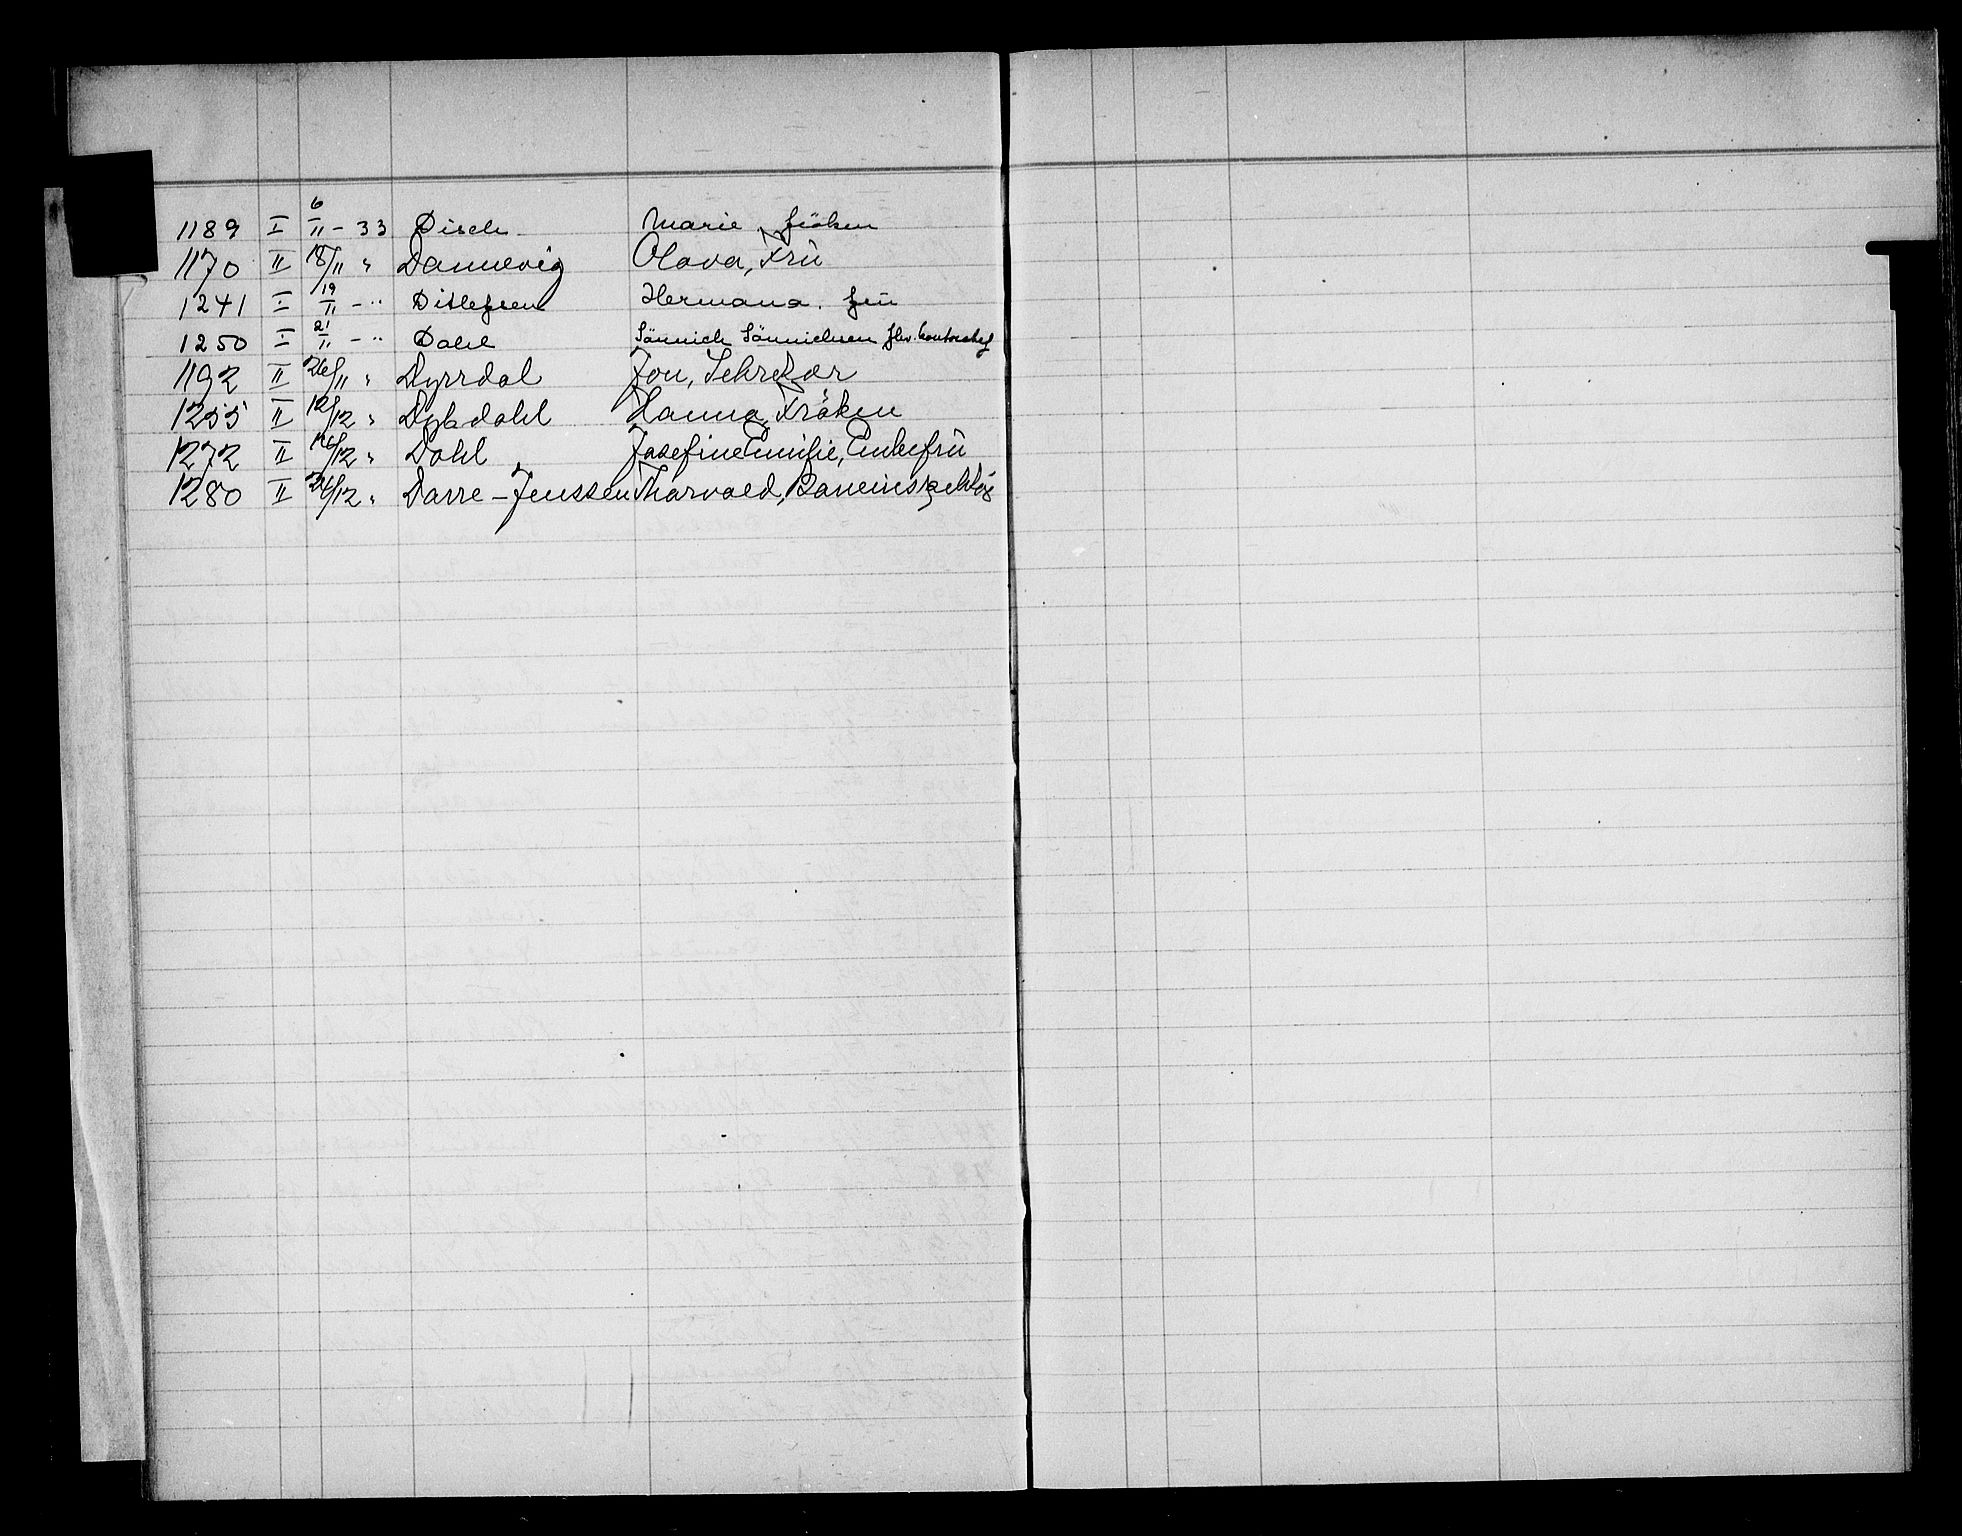 1189 I 6/11 - 33 Disch Marie, fröken
1170 II 18/11 " Dannevig Olava, Frü
1241 I 19/11 - " Ditlefsen Hermana. frü
1250 I 21/11 - " Dahl Sönnich Sönnichsen fhv.
1192 II 26/11 " Dyrrdal Jon, Sekretær
1255 II 12/12 " Dybdahl Hanna, Fröken
1272 II 16/12 " Dahl Josefine Emilie, Enkefrü
1280 II 24/12 " Darre-Jenssen Tharvald,